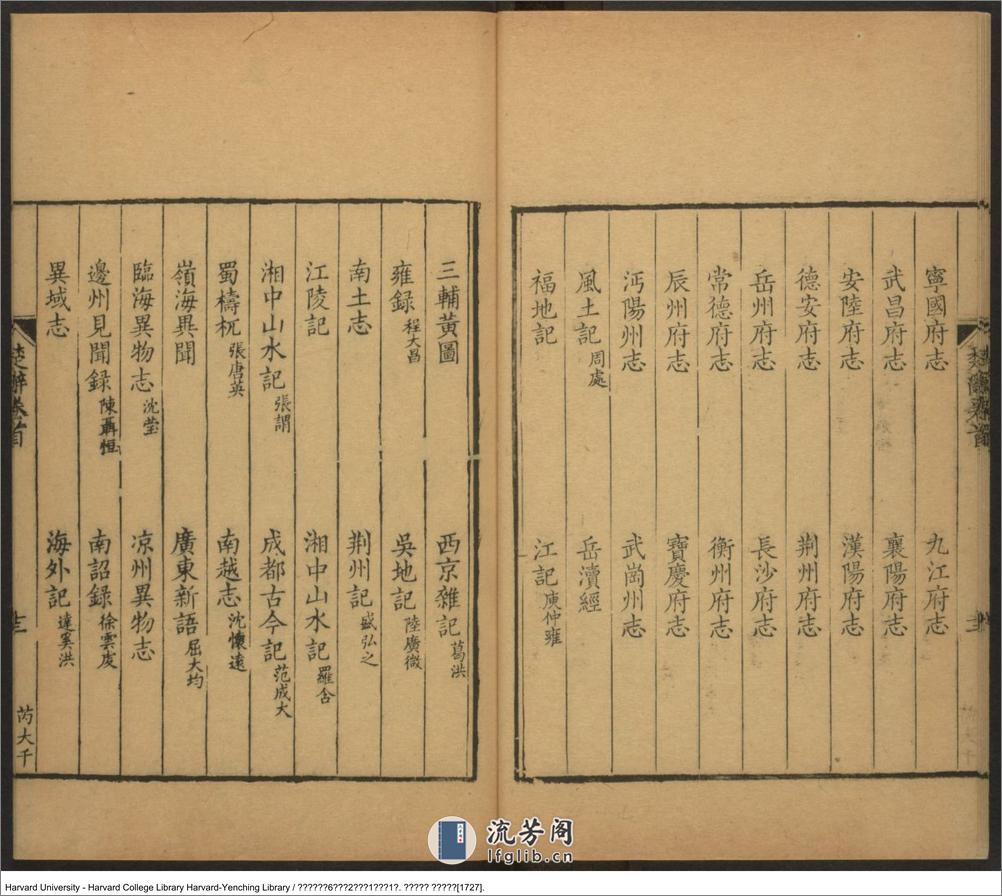 寧國府志 九江府志
武昌府志 襄陽府志
安陸府志 漢陽府志
德安府志 荆州府志
岳州府志 長沙府志
常德府志 衡州府志
辰州府志 寶慶府志
沔陽州志 武崗州志
風土記 周處 岳瀆經
福地記 江記 庾仲雍
三輔黃圖 西京雜記 葛洪
雍録 程大昌 吳地記 陸廣微
南土志 荆州記 盛弘之
江陵記 湘中山水記 羅含
湘中山水記 張謂 成都古今記 范成大
蜀檮杌 張唐英 南越志 沈懷遠
嶺海異聞 廣東新語 屈大均
臨海異物志 沈瑩 凉州異物志
邊州見聞録 陳聶恒 南詔録 徐雲虔
異域志 海外記 達奚洪
楚辭卷首 芮大千
流芳阁
lfglib.cn
Harvard University - Harvard College Library Harvard-Yenching Library / ??????6???2???1???1?. ????? ?????[1727].